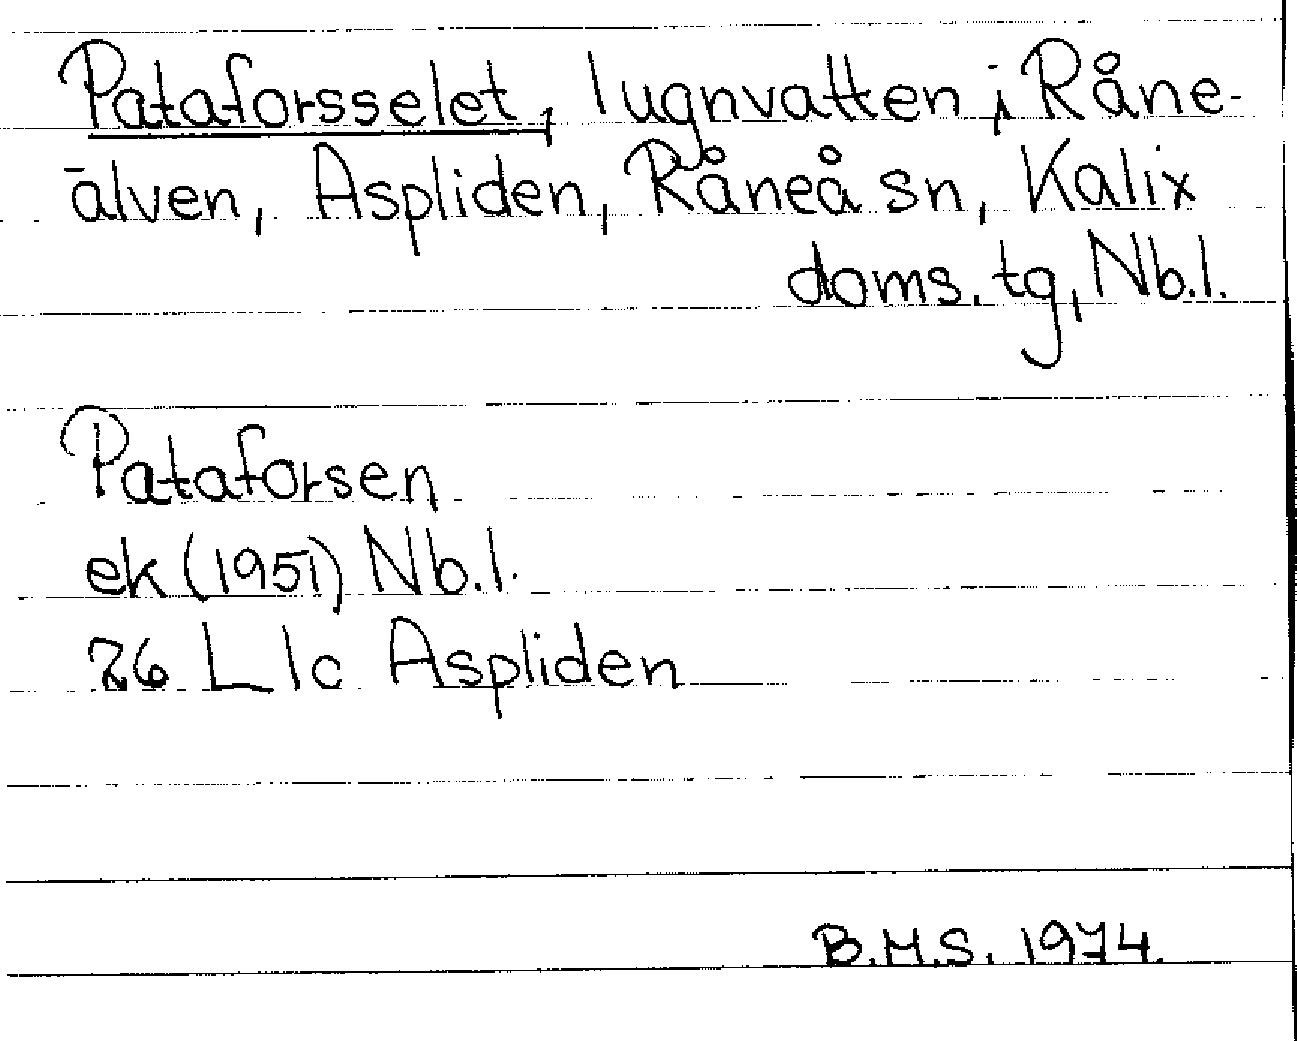 Pataforsselet, lugnvatten i Råne-
älven, Aspliden, Råneå sn, Kalix
doms. tg, Nb.l.
Pataforsen
ek (1951) Nb.l.
26 L 1c Aspliden
B.M.S. 1974.